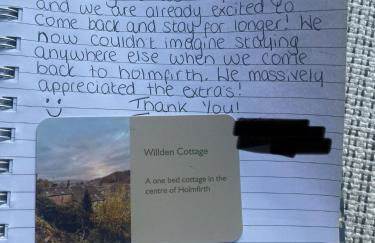 and we are already excited to
come back and stay for longer! We
now couldn't imagine staying
anywhere else when we come
back to holmfirth. We massively
appreciated the extra's!
Thank You!
Willden Cottage
A one bed cottage in the
centre of Holmfirth